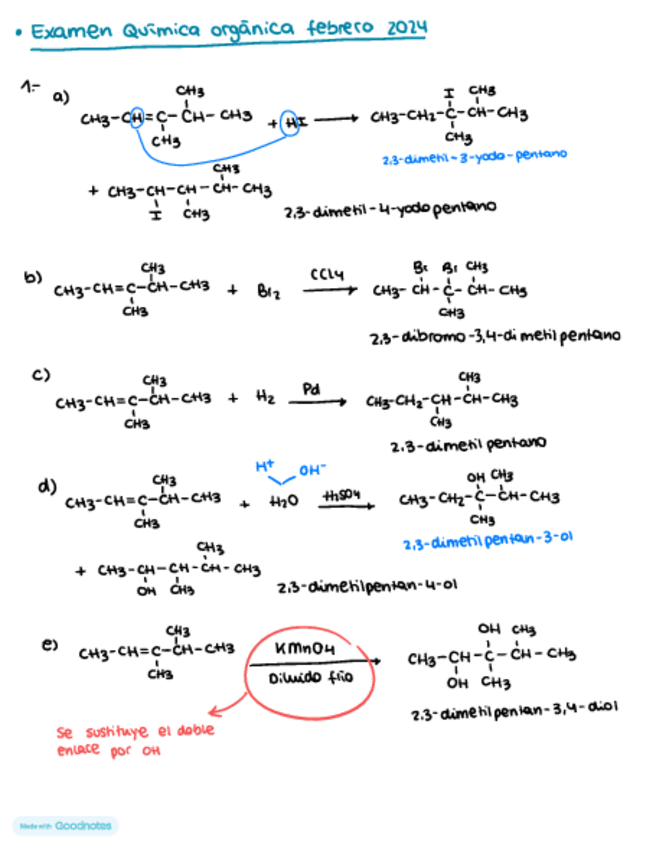 • Examen Química orgánica febrero 2024
1.- a)
CH3
CH3-CH=C-CH-CH3 + HI → CH3-CH2-C-CH-CH3
CH3
I CH3
CH3
2,3-dimetil-3-yodo-pentano
CH3
+ CH3-CH-CH-CH-CH3
I CH3
2,3-dimetil-4-yodopentano
b)
CH3
CH3-CH=C-CH-CH3 + Br2 CCl4 → CH3-CH-C-CH-CH3
CH3
Br Br CH3
CH3
2,3-dibromo-3,4-dimetilpentano
c)
CH3
CH3-CH=C-CH-CH3 + H2 Pd → CH3-CH2-CH-CH-CH3
CH3
CH3
CH3
2,3-dimetilpentano
H+ OH-
d)
CH3
CH3-CH=C-CH-CH3 + H2O H2SO4 → CH3-CH2-C-CH-CH3
CH3
OH CH3
CH3
2,3-dimetilpentan-3-ol
CH3
+ CH3-CH-CH-CH-CH3
OH CH3
2,3-dimetilpentan-4-ol
e)
CH3
CH3-CH=C-CH-CH3 KMnO4 → CH3-CH-C-CH-CH3
CH3
Diluido frío
OH CH3
OH CH3
2,3-dimetilpentan-3,4-diol
Se sustituye el doble
enlace por OH
Made with Goodnotes